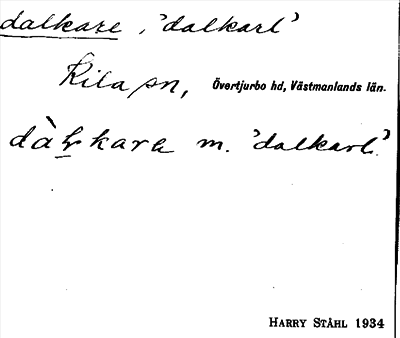 dalkare, 'dalkarl'
Kila sn, Övertjurbo hd, Västmanlands län.
kara m. 'dalkarl'.
HARRY STÅHL 1934